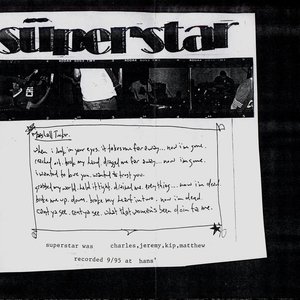 süperstar
KODAK 5063 TMY
KODAK 5063 TMY
when i look in your eyes. it takes me far away... now i'm gone.
reached out. took my hand. dragged me far away... now i'm gone.
i wanted to love you. wanted to trust you.
my world. held it tight. me. everything... now i'm dead.
broke me up. down. broke my heart in two. now i'm dead.
cant ya see. cant ya see. what that woman's been doin to me.
superstar was charles,jeremy,kip,matthew
recorded 9/95 at hams'